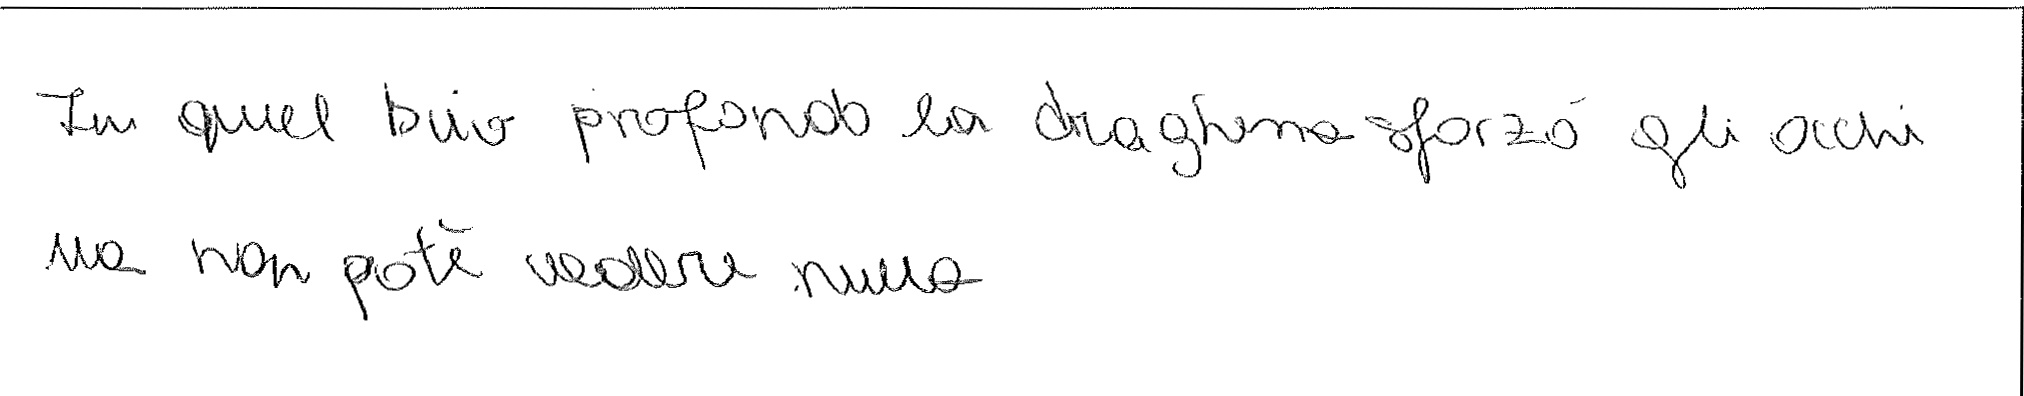 In quel buio profondo la draghena sforzó gli occhi
ma non potè vedere nulla